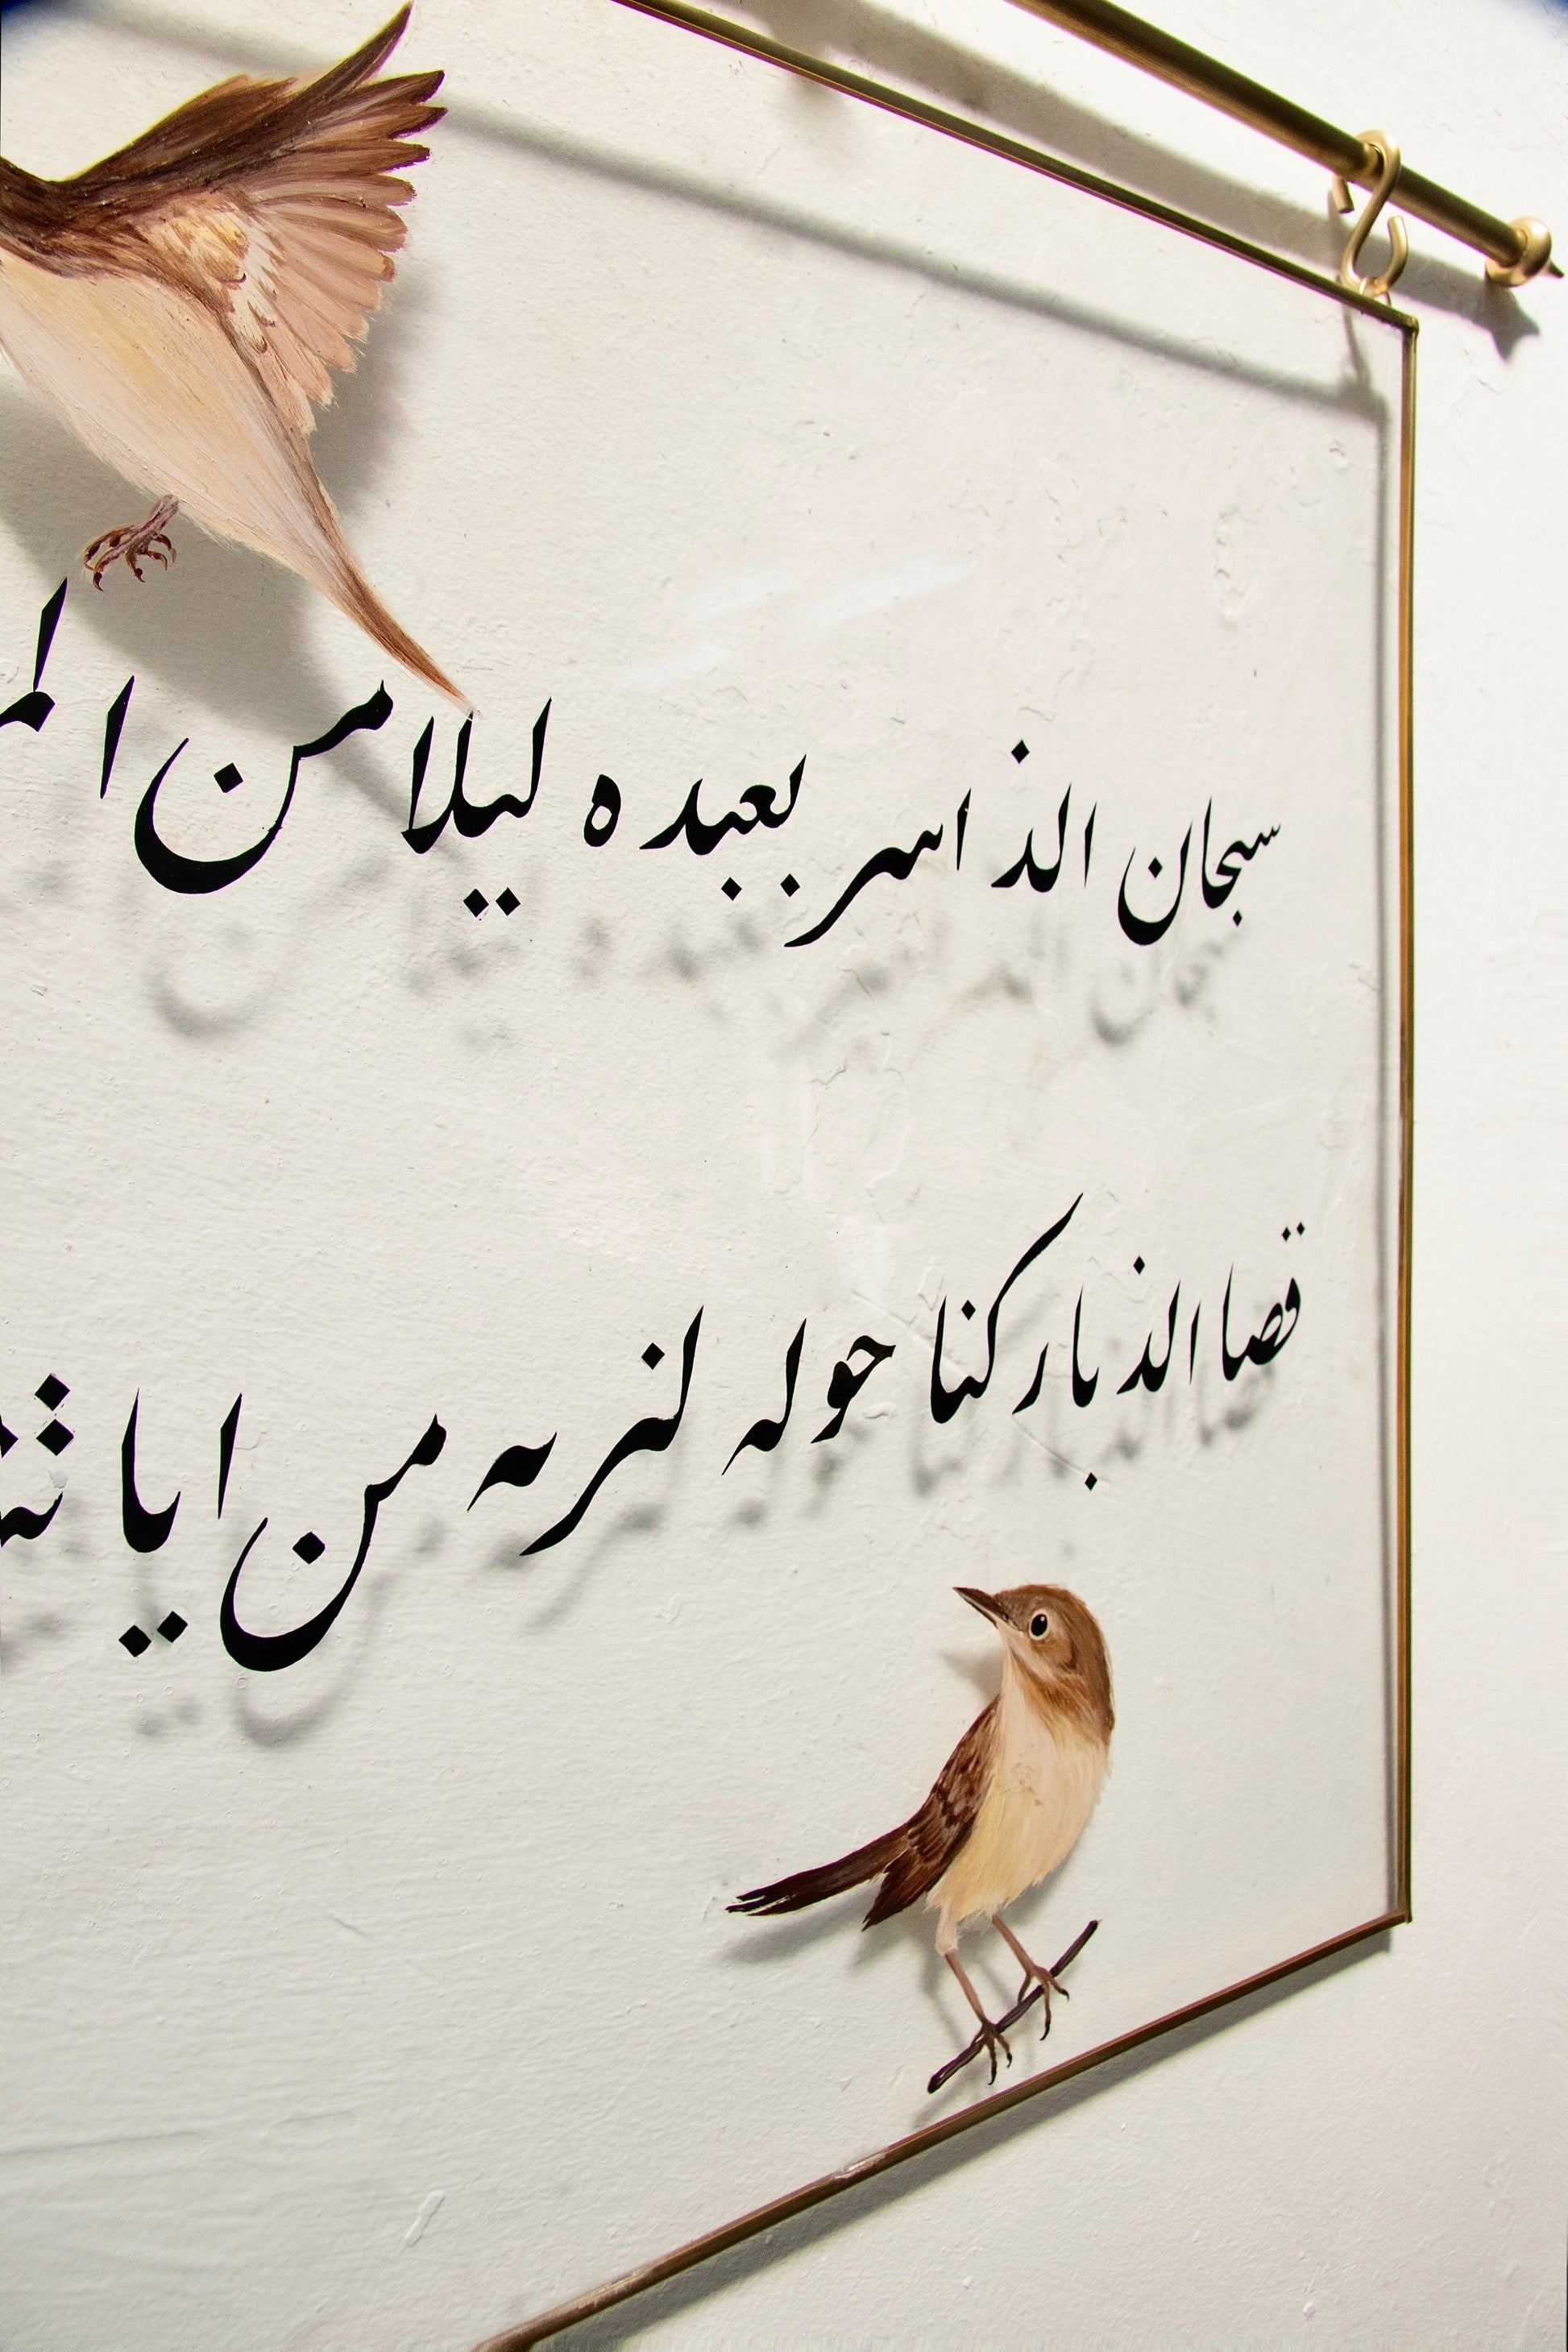 سبحان الذ اسر بعبده ليلا من
قصا الذ باركنا حوله لنرىه من ايا